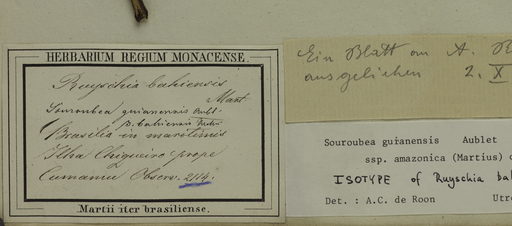 HERBARIUM REGIUM MONACENSE.
Ruyschia bahiensis
Mart
Souroubea guianensis Aubl.
B. bahiensis
Brasilia in maritimis
Ilha Chiqueiro prope
Camamu Observ. 2114.
Martii iter brasiliense.
Ein Blatt an A.
ausgeliehen 2. X
Souroubea guianensis Aublet
ssp. amazonica (Martius)
ISOTYPE of Ruyschia ba
Det. : A.C. de Roon Utre